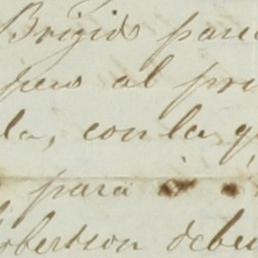 Brigid para
pero al pri
la, con la q
para a
Robertson debe